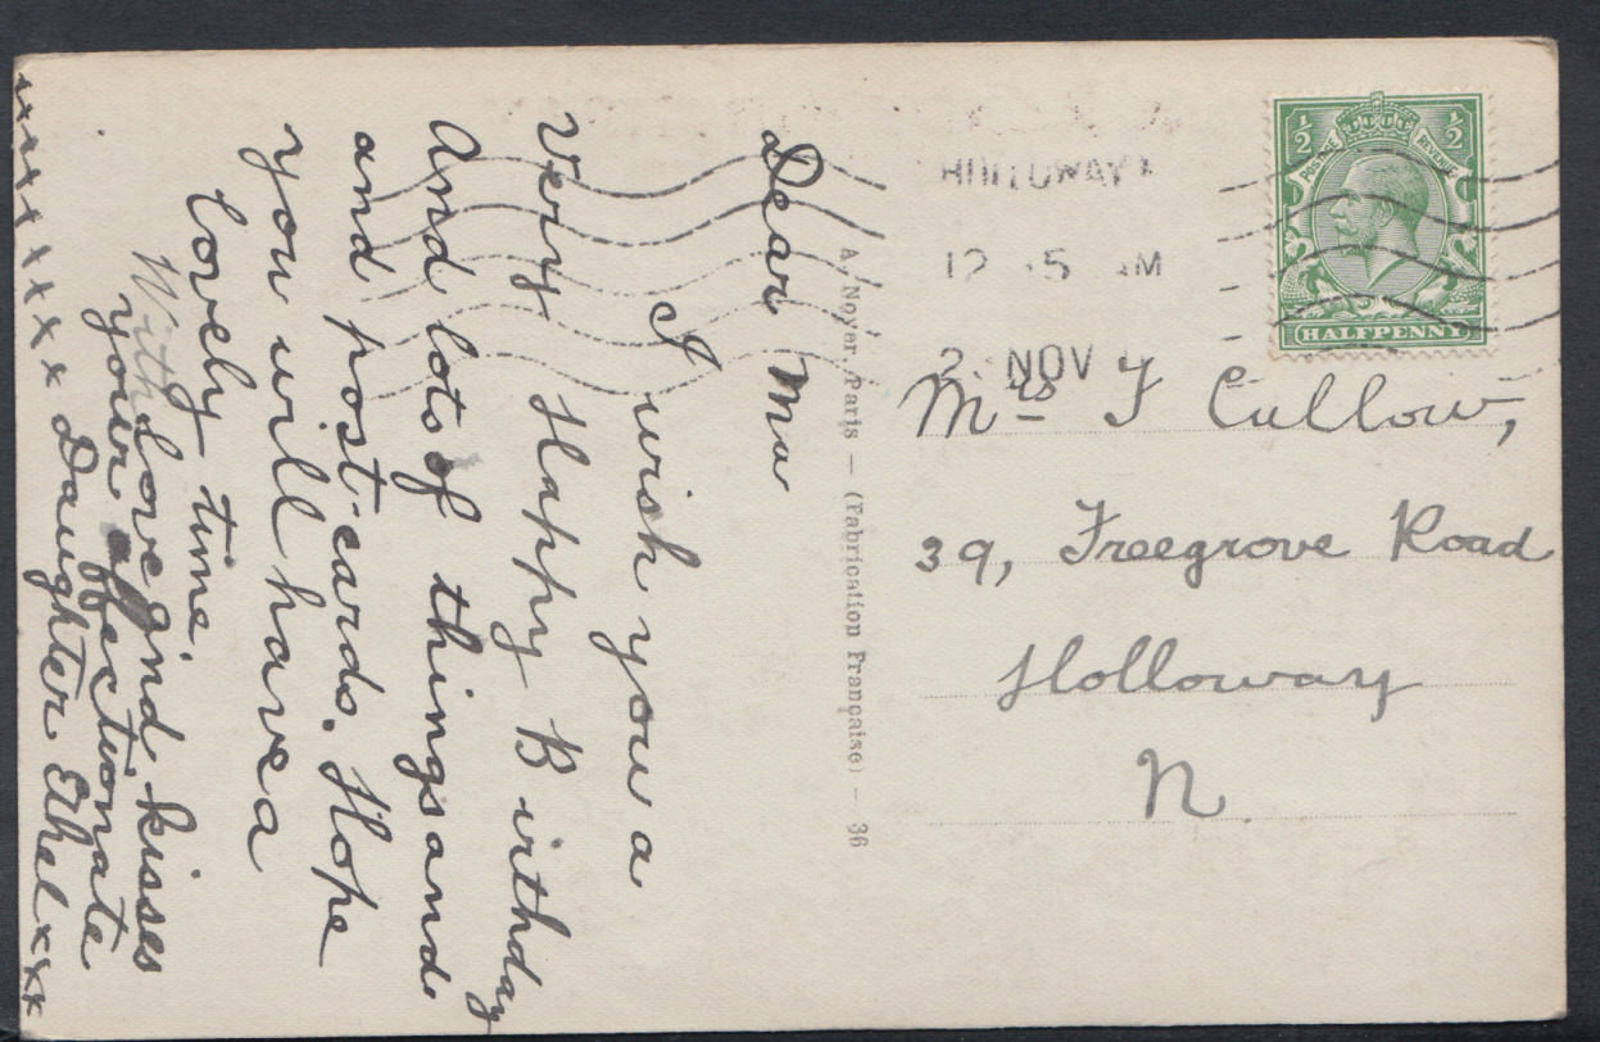 Dear Ma
I wish you a
Very Happy Birthday
And lots of things and
and post-cards. Hope
you will have a
lovely time.
With love and kisses
your affectionate
Daughter Ethel x x x
x x x x x x x x x
A. Noyer, Paris — (Fabrication Française) — 36
HOLLOWAY
NOV
½ ½
POSTAGE REVENUE
HALFPENNY
Mrs F Cullow,
39, Freegrove Road
Holloway
N.